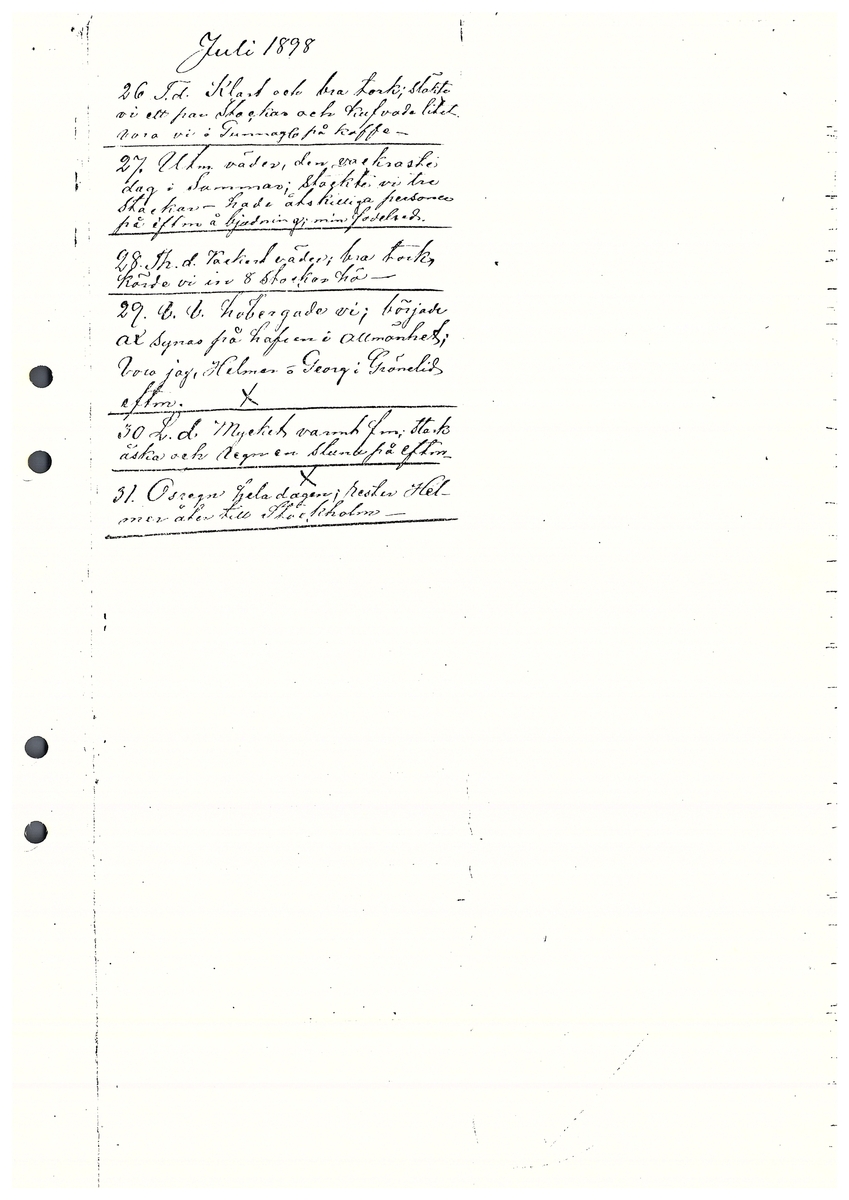 Juli 1898
26 T.d. Klart och bra tork; stäkte
vi ett par Stackar och kufvade litet.
Vora vi i Gunnaglo på kaffe —
27. Utm väder, den vackraste
dag i Sommar; stäckte vi tre
Stackar — hade åtskilliga personer
på eftm å bjudning; min födelsed.
28. Th. d. Vackert väder; bra tork,
körde vi in 8 Stackar hö —
29. höbergade vi; började
ax synas på hafren i allmänhet;
Voro jag, Helmer o Georg i Grönelid
eftm. X
30 L. d. Mycket varmt fm; stark
åska och regn en stund på eftm
X
31. Ösregn hela dagen; rester Hel-
mer åter till Stockholm —